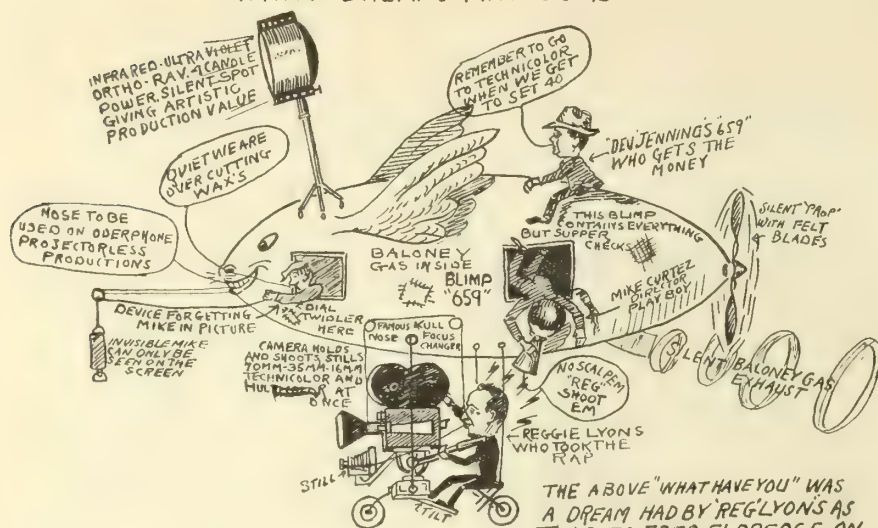 INFRARED-ULTRA VIOLET
ORTHO-RAY. 4 CANDLE
POWER. SILENT SPOT
GIVING ARTISTIC
PRODUCTION VALUE
REMEMBER TO GO
TO TECHNICOLOR
WHEN WE GET
TO SET 40
"DEV" JENNING'S "659"
WHO GETS THE
MONEY
QUIET WE ARE
OVER CUTTING
WAX'S
NOSE TO BE
USED ON ODERPHONE
PROJECTORLESS
PRODUCTIONS
SILENT "PROP"
WITH FELT
BLADES
THIS BLIMP
CONTAINS EVERYTHING
BUT SUPPER
CHECKS
BALONEY
GAS INSIDE
BLIMP
"659"
MIKE CURTEZ
DIRECTOR
PLAY BOY
DEVICE FOR GETTING
MIKE IN PICTURE
DIAL
TWIDLER
HERE
INVISIBLE MIKE
CAN ONLY BE
SEEN ON THE
SCREEN
FAMOUS KULL
NOSE FOCUS
CHANGER
CAMERA HOLDS
AND SHOOTS, STILLS
70MM-35MM-16MM
TECHNICOLOR AND
AT
ONCE
SILENT BALONEY GAS
EXHAUST
NO SCALPEM
"REG"
SHOOT
EM
REGGIE LYONS
WHO TOOK THE
RAP
STILL
TILT
THE ABOVE "WHAT HAVE YOU" WAS
A DREAM HAD BY "REG" LYON'S AS